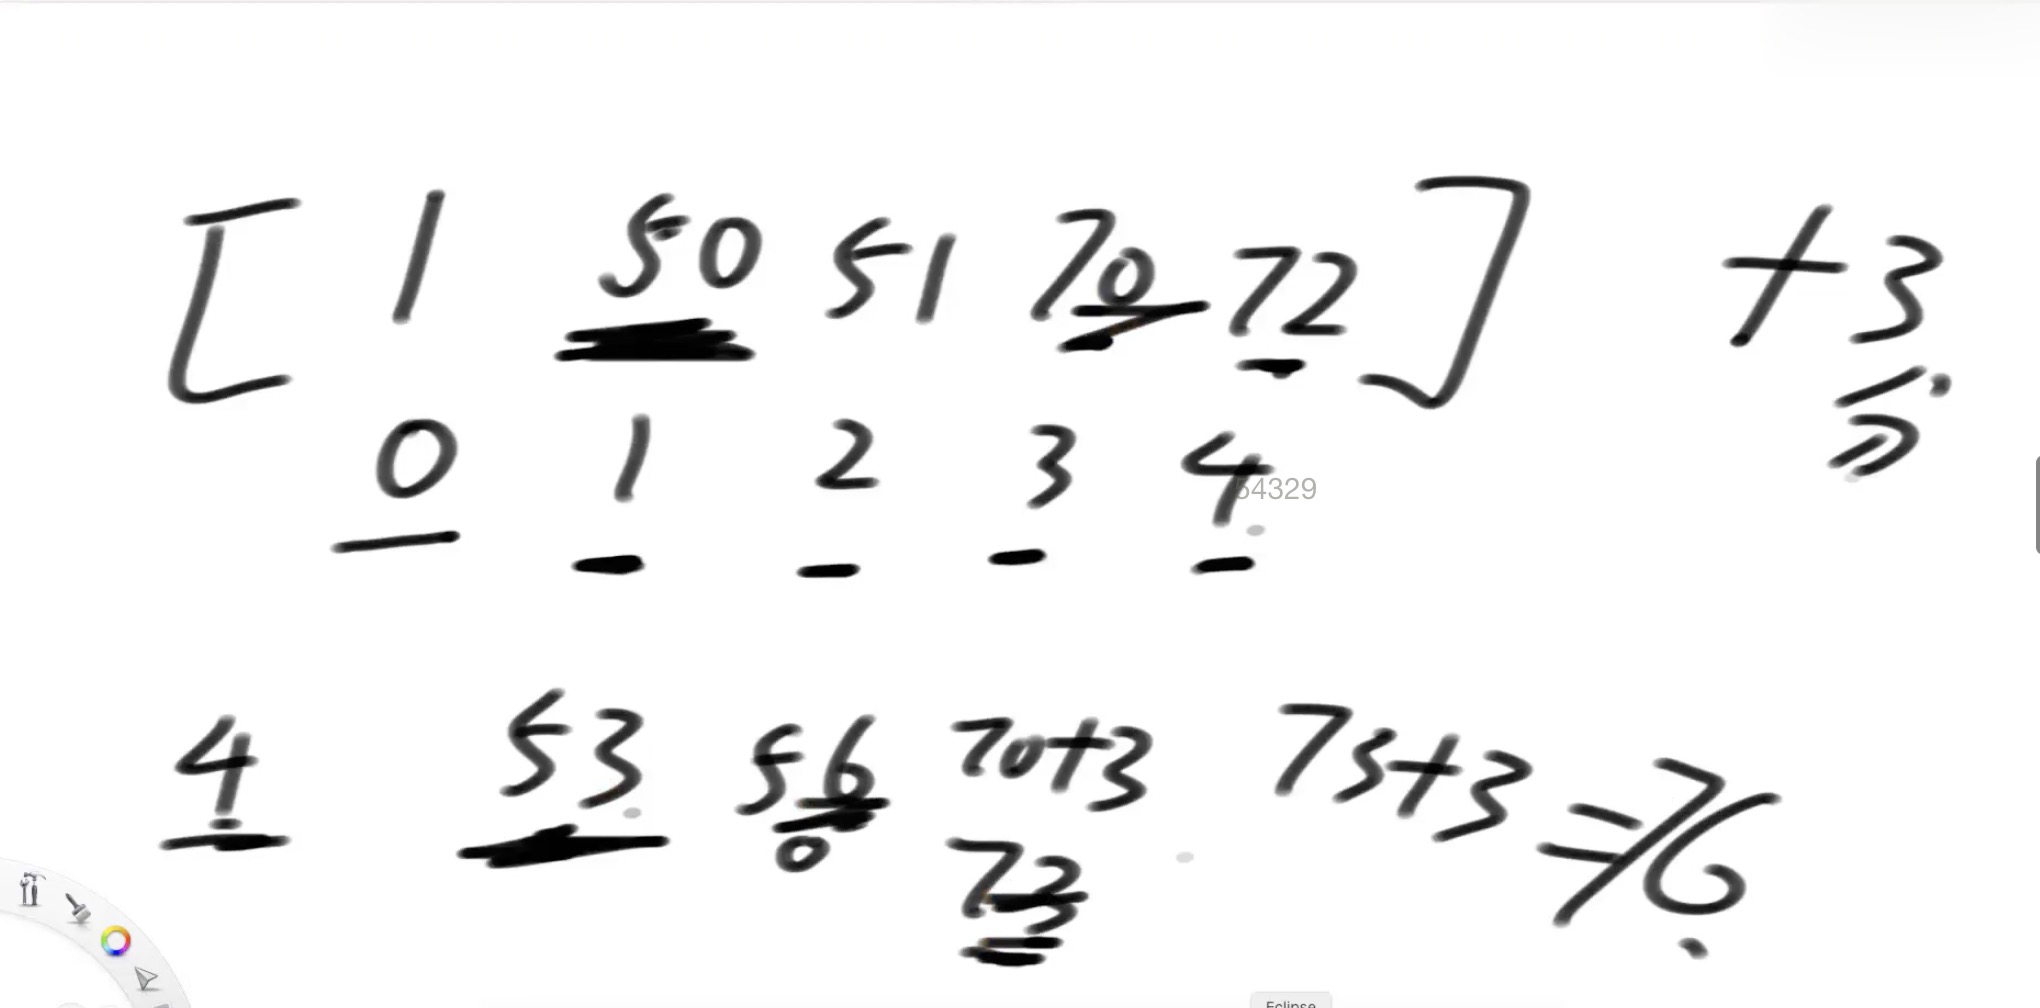 [ 1 50 51 70 72 ] +3
0 1 2 3 4
54329
4 53 56 70+3 73+3 =76
0 73
Eclipse